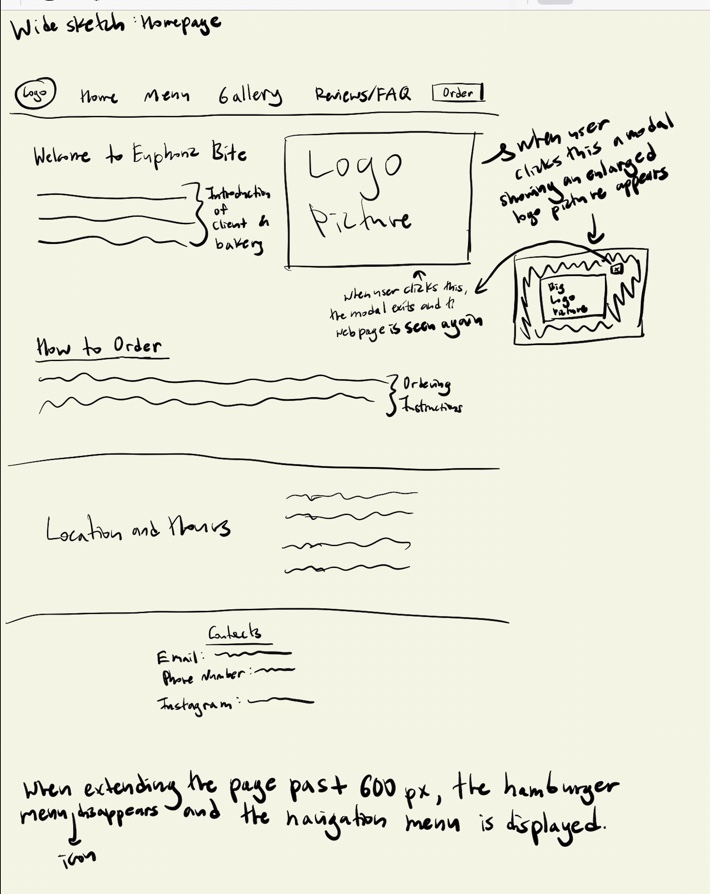 Wide sketch: Homepage
Logo Home Menu Gallery Reviews/FAQ Order
Welcome to Euphonz Bite
Introduction
of
client &
bakery
Logo
Picture
when user
clicks this a modal
showing an enlarged
logo picture appears
x
Big
Logo
Picture
when user clicks this,
the modal exits and
web page is seen again
How to Order
Ordering
Instructions
Location and Hours
Contacts
Email:
Phone Number:
Instagram:
When extending the page past 600 px, the hamburger
menu disappears and the navigation menu is displayed.
icon